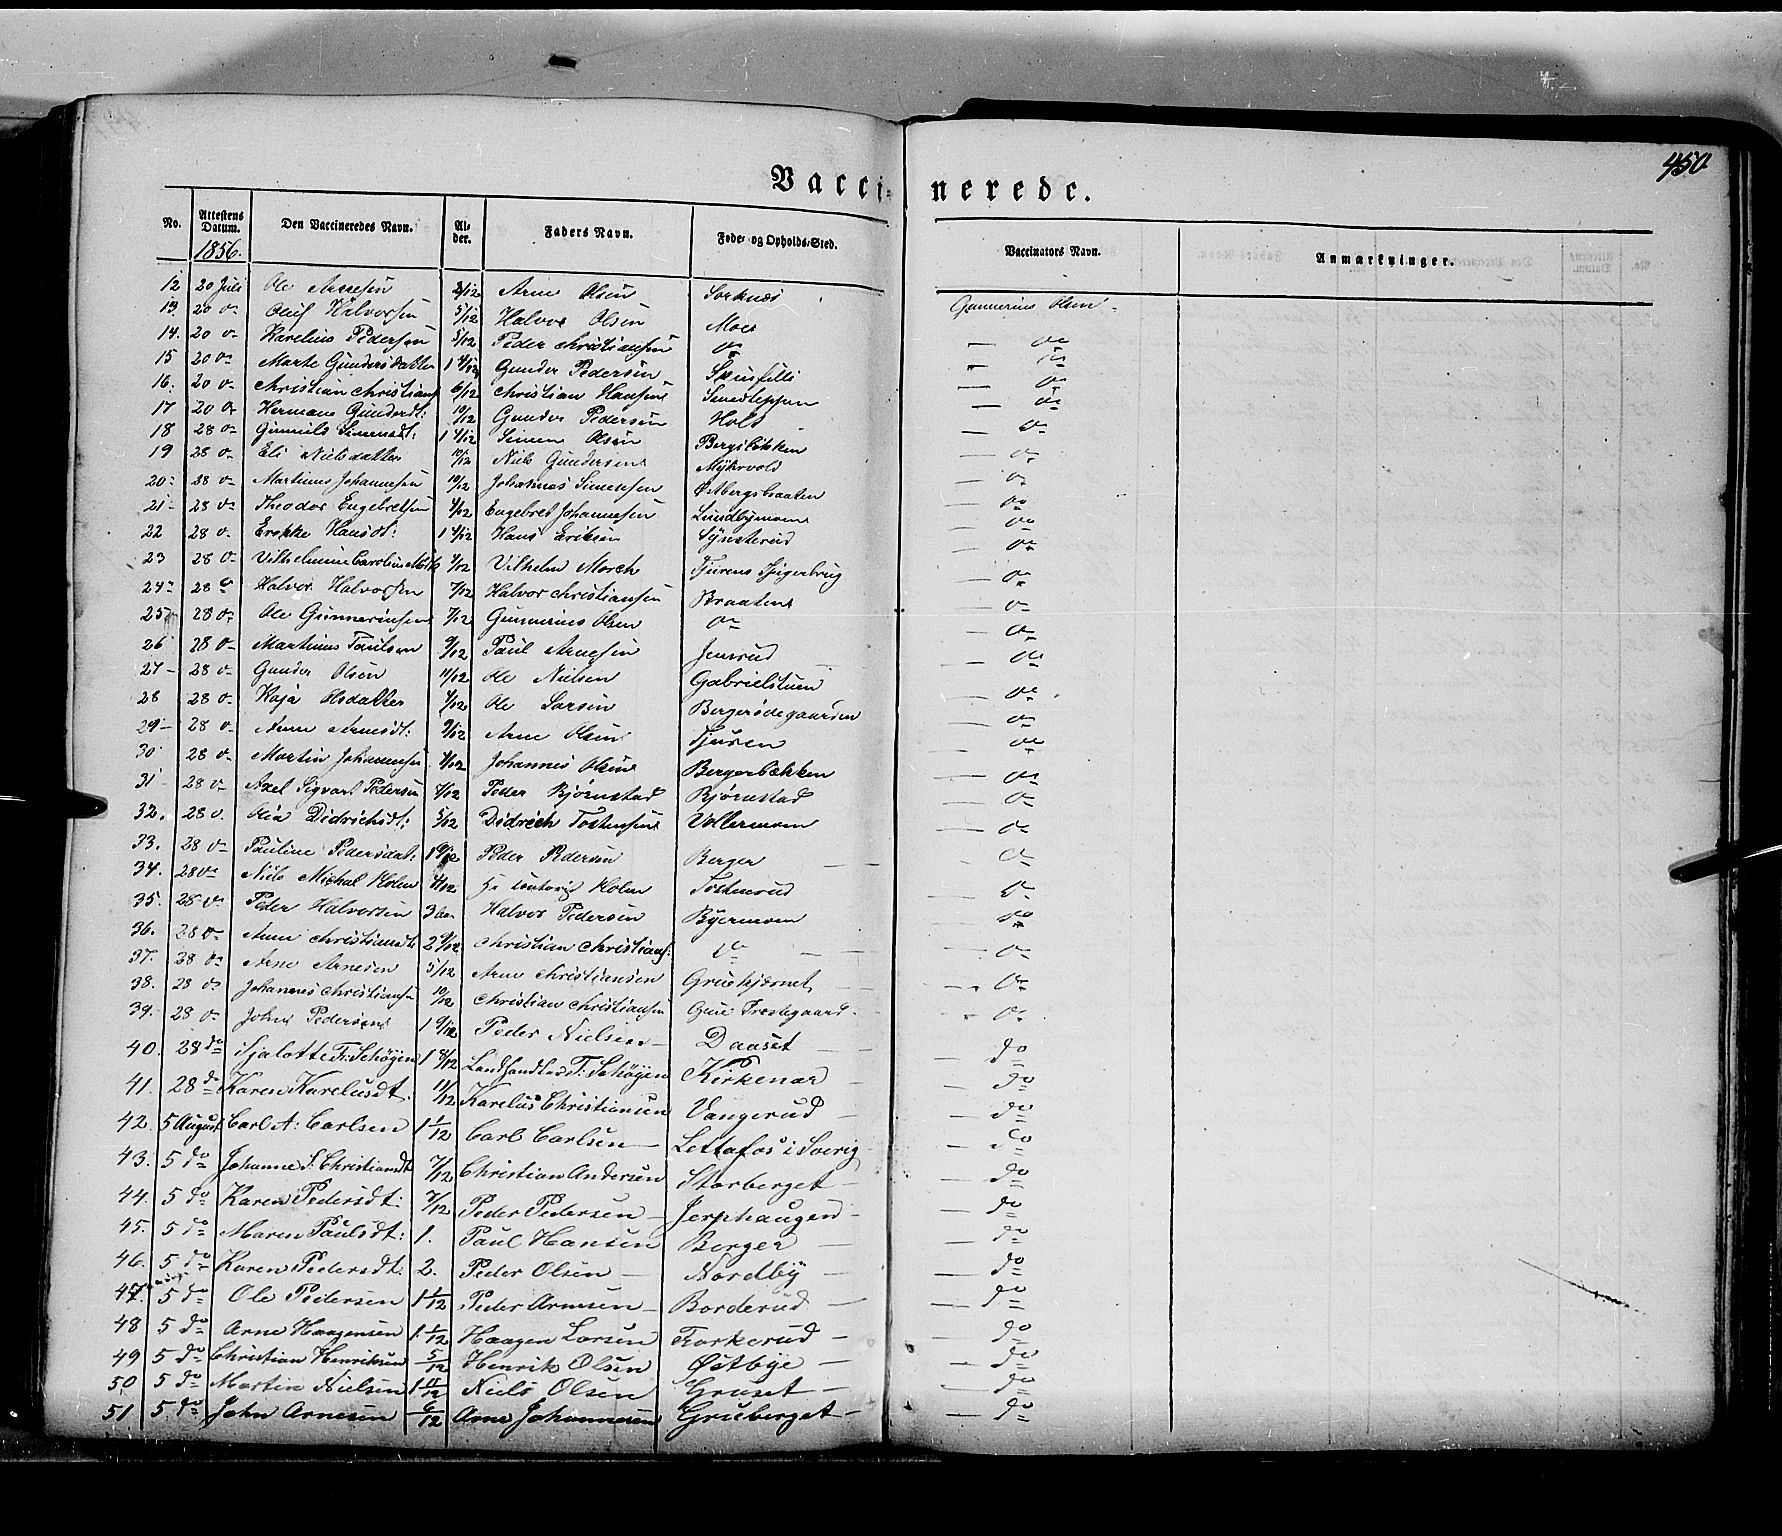 450
Vaccinerede.
No. Attestens Datum. Den Vaccineredes Navn. Alder. Faders Navn. Føde- og Opholds-Sted. Vaccinators Navn. Anmærkninger.
1856.
12 20 Juli Ole Arnesen 2/12 Arne Olsen Sorknæs Gunnerius Olsen
13. 20 do Oluf Halvorsen 5/12 Halvor Olsen Moer
14. 20 do Karelius Pedersen 5/12 Peder Christiansen do — do
15 20 do Marte Gundersdatter 1 Gunder Pedersen — do
16. 20 do Christian Christians 6/12 Christian Hansen — do
17 20 do Hermane Gunderdt: 10/12 Gunder Pedersen Holt — do
18 28 do Simensdt: 1 Simen Olsen Bergsbekken — do
19 28 do Eli Nielsdatter 10/12 Niels Gundersen Myhrvold — do
20 28 do Martinus Johannesen 10/12 Johannes Simensen Østbergsbraaten — do
21 28 do Theodor Engebretsen 4/12 Engebret Johannesen Lundbymoen — do
22 28 do Hansdt: 1 Hans Eriksen Synsterud — do
23 28 do Vilhelmine Caroline 7/12 Vilhelm Morch Tjurens — do
24 28 do Halvor Halvorsen 7/12 Halvor Christiansen Braaten — do
25 28 do Ole Gunneriusen 7/12 Gunnerius Olsen do — do
26 28 do Martinus Paulsen 9/12 Paul Arnesen Jensrud — do
27 28 do Gunder Olsen 11/12 Ole Nielsen Gabrielstuen — do
28 28 do Kaja Olsdatter Ole Larsen Bergersødegaarden — do
29 28 do Anne Arnesdt: 9/12 Arne Olsen Tjuren — do
30 28 do Martin Johannesen Johannes Olsen Bergerbekken — do
31 28 do Axel Sigvart Pedersen Peder Bjørnstad Bjørnstad — do
32. 28 do Olia Didrichsdt: 5/12 Didrich Tostensen Vollermoen — do
33. 28 do Pauline Pedersdat: 1 Peder Pedersen Berger — do
34. 28 do Niels Michal Holm Holm Tostenrud — do
35. 28 do Peder Halvorsen 3 Halvor Pedersen Byermoen — do
36. 28 do Anne Christiansdt 2 9/12 Christian Christians: do — do
37. 28 do Arne Arnesen 5/12 Arne Christiansen Gruekjernet — do
38. 28 do Johannes Christiansen 10/12 Christian Christiansen Grue Præstegaard do
39. 28 do John Pedersen 1 9/12 Peder Nielsen Daaset — do
40. 28 do Sjalotte Fr: Schøyen 1 8/12 Landhandler F: Schøyen Kirkenær — do
41. 28 do Karen Karelusdt. 11/12 Karelus Christiansen Vangerud — do
42. 5 August Carl A: Carlsen 1 1/12 Carl Carlsen Lettafos i Sverig — do
43. 5 do Johanne S. Christiansdt 7/12 Christian Andersen Storberget — do
44. 5 do Karen Pedersdt: 7/12 Peder Pedersen Jerphaugen — do
45. 5 do Maren Paulsdt: 1. Paul Hansen Berger — do
46. 5 do Karen Pedersdt: 2. Peder Olsen Nordby — do
47. 5 do Ole Pedersen 1 1/12 Peder Arnesen Borderud — do
48 5 do Arne Haagensen 1 1/12 Haagen Larsen Torkerud — do
49 5 do Christian Henriksen 5/12 Henrik Olsen Østbye — do
50 5 do Martin Nielsen 1 11/12 Niels Olsen Gruset — do
51 5 do John Arnesen 6/12 Arne Johannesen Gruberget — do